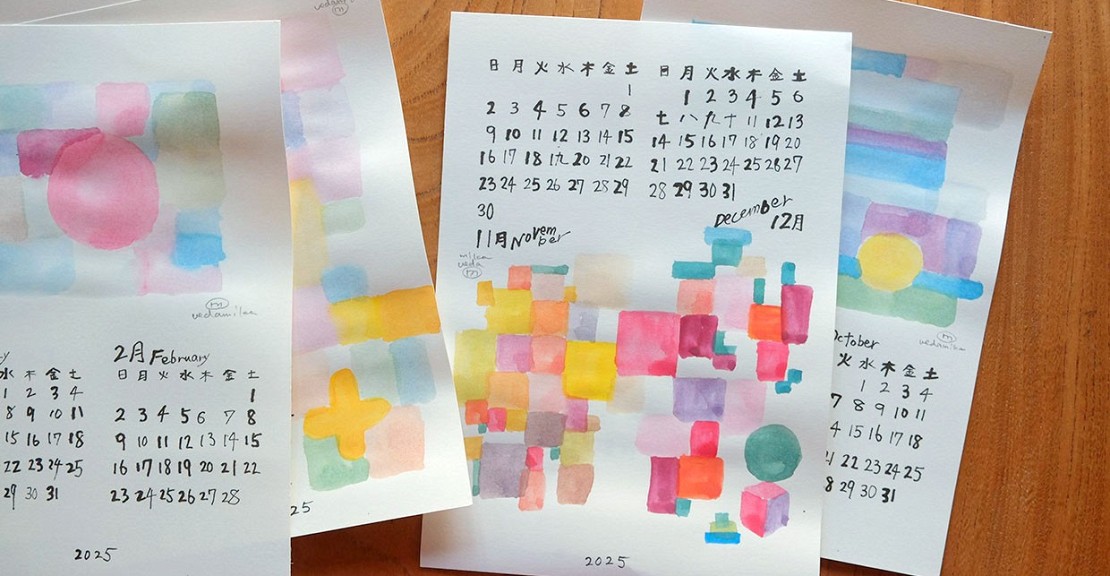 vedamilea
2月 February
水 木 金 土
1 2 3 4
8 9 10 11
15 16 17 18
22 23 24 25
29 30 31
日 月 火 水 木 金 土
1
2 3 4 5 6 7 8
9 10 11 12 13 14 15
16 17 18 19 20 21 22
23 24 25 26 27 28
2025
25
日 月 火 水 木 金 土
1
2 3 4 5 6 7 8
9 10 11 12 13 14 15
16 17 18 1九 20 21 22
23 24 25 26 27 28 29
30
11月 November
milea
veda
m
日 月 火 水 木 金 土
1 2 3 4 5 6
七 八 九 十 11 12 13
14 15 16 17 18 19 20
21 22 23 24 25 26 27
28 29 30 31
December
12月
2025
m
vedamilea
October
火 水 木 金 土
1 2 3 4
7 8 9 10 11
4 15 16 17 18
21 22 23 24 25
8 29 30 31